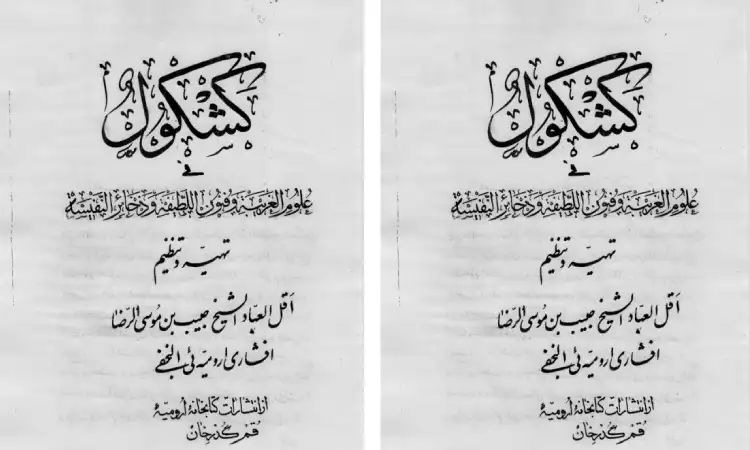 كَشْكُولْ
في
عُلُومِ الغَريبَة وَفُنُونِ اللَطيفَة وَذَخَائِرِ النَفيسَة
تهيّه و تنظيم
اَقل العبّاد الشيخ حبيب بن مُوسى الرّضا
افشارى اروميّه ئى النجفى
از انتشارات كتابخانهٔ اروميّهٔ
قم گذرخان
كَشْكُولْ
في
عُلُومِ الغَريبَة وَفُنُونِ اللَطيفَة وَذَخَائِرِ النَفيسَة
تهيّه و تنظيم
اَقل العبّاد الشيخ حبيب بن مُوسى الرّضا
افشارى اروميّه ئى النجفى
از انتشارات كتابخانهٔ اروميّهٔ
قم گذرخان